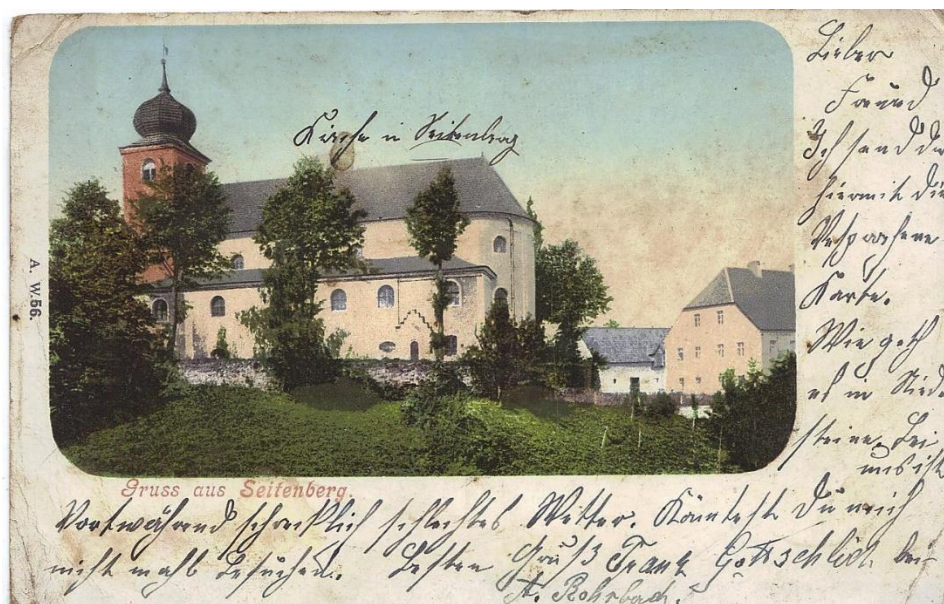 Kirche in Seitenberg
A. W. 56.
Gruss aus Seitenberg.
Lieber
Freund
Ich send dir
hiermit die
Vesprochene
Karte.
Wie geth
es in Niede
steine. Bei
uns ist
Vortwährend schrecklich schlechtes Wetter. Könntest du mich
nicht mahl besuchen. Besten Gruß Franz Gottschlich bei
A. Rohrbach.